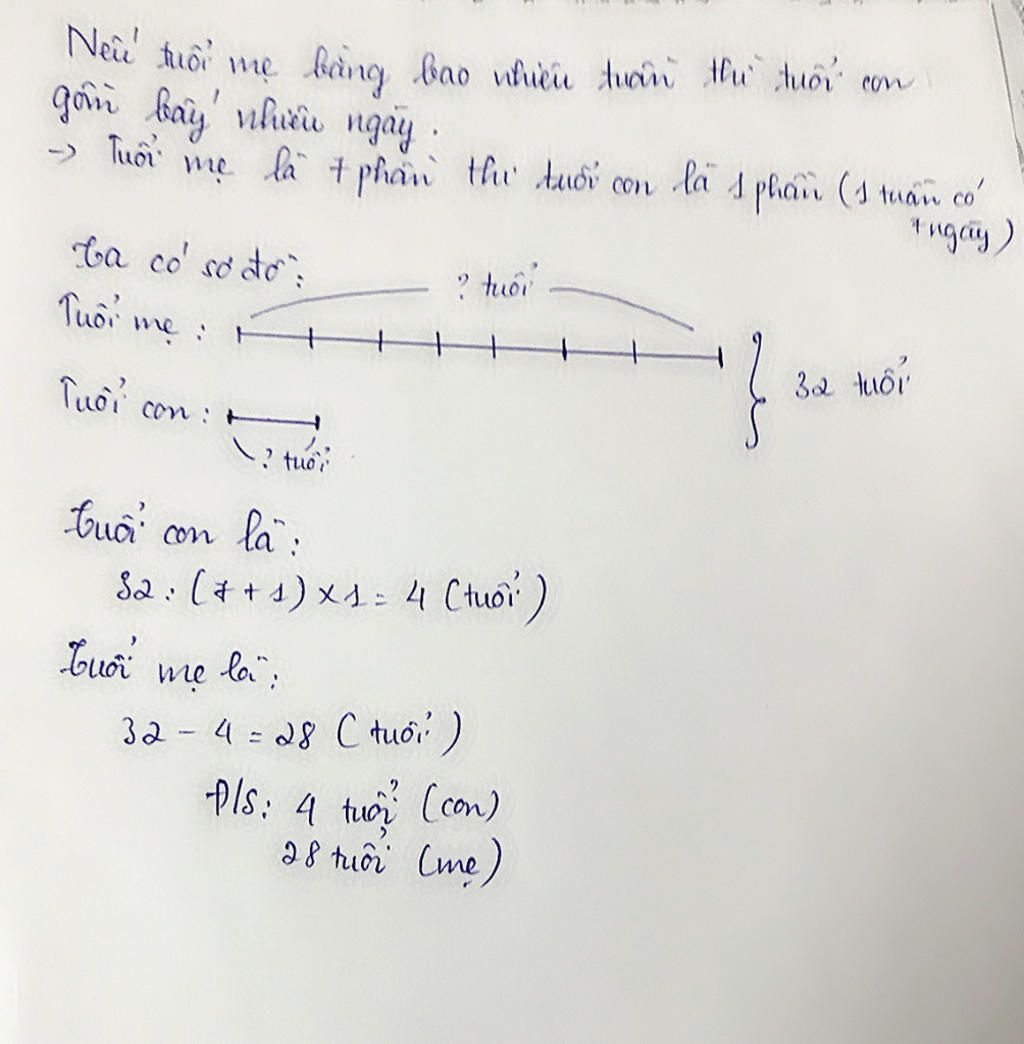 Nếu tuổi mẹ bằng bao nhiêu tuần thì tuổi con
gồm bấy nhiêu ngày.
-> Tuổi mẹ là 7 phần thì tuổi con là 1 phần (1 tuần có
7 ngày)
Ta có sơ đồ:
? tuổi
Tuổi mẹ:
32 tuổi
Tuổi con:
? tuổi
Tuổi con là:
32 : (7 + 1) x 1 = 4 (tuổi)
Tuổi mẹ là:
32 - 4 = 28 (tuổi)
Đ/S: 4 tuổi (con)
28 tuổi (mẹ)